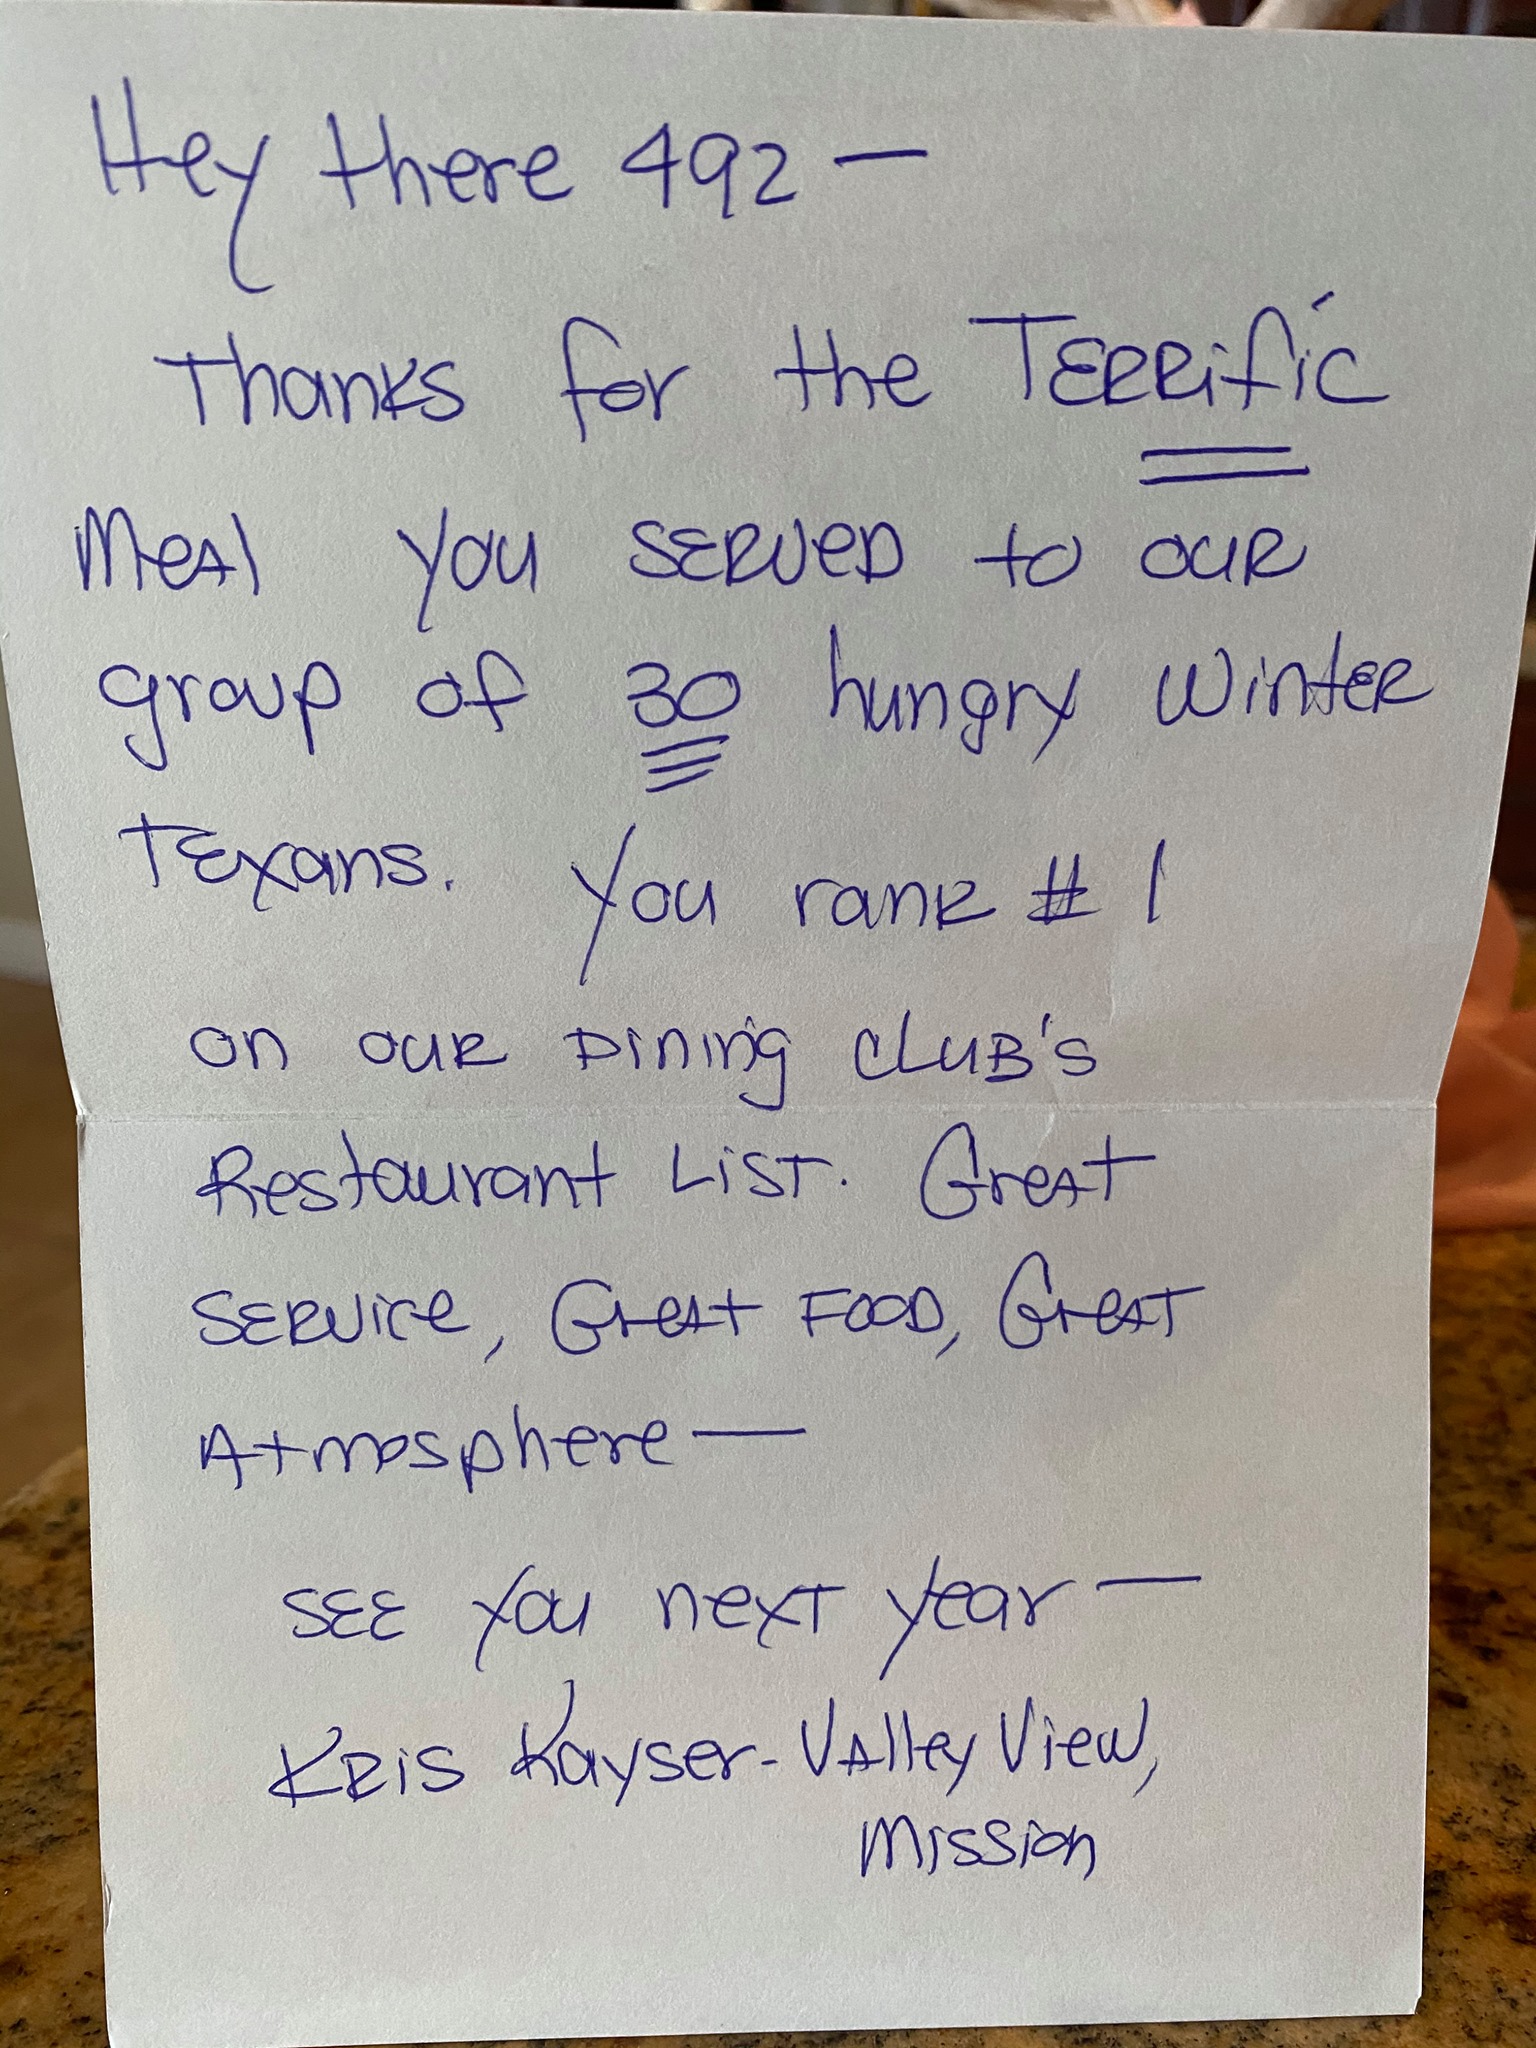 Hey there 492 —
Thanks for the TERRific
Meal you SERVED to OUR
group of 30 hungry WinTER
TExans. You rank # 1
on OUR Dining CLUB's
Restaurant LiST. Great
SERVice, Great FOOD, GreaT
Atmosphere —
SEE you nexT year —
KRis Kayser - VAlley View,
Mission